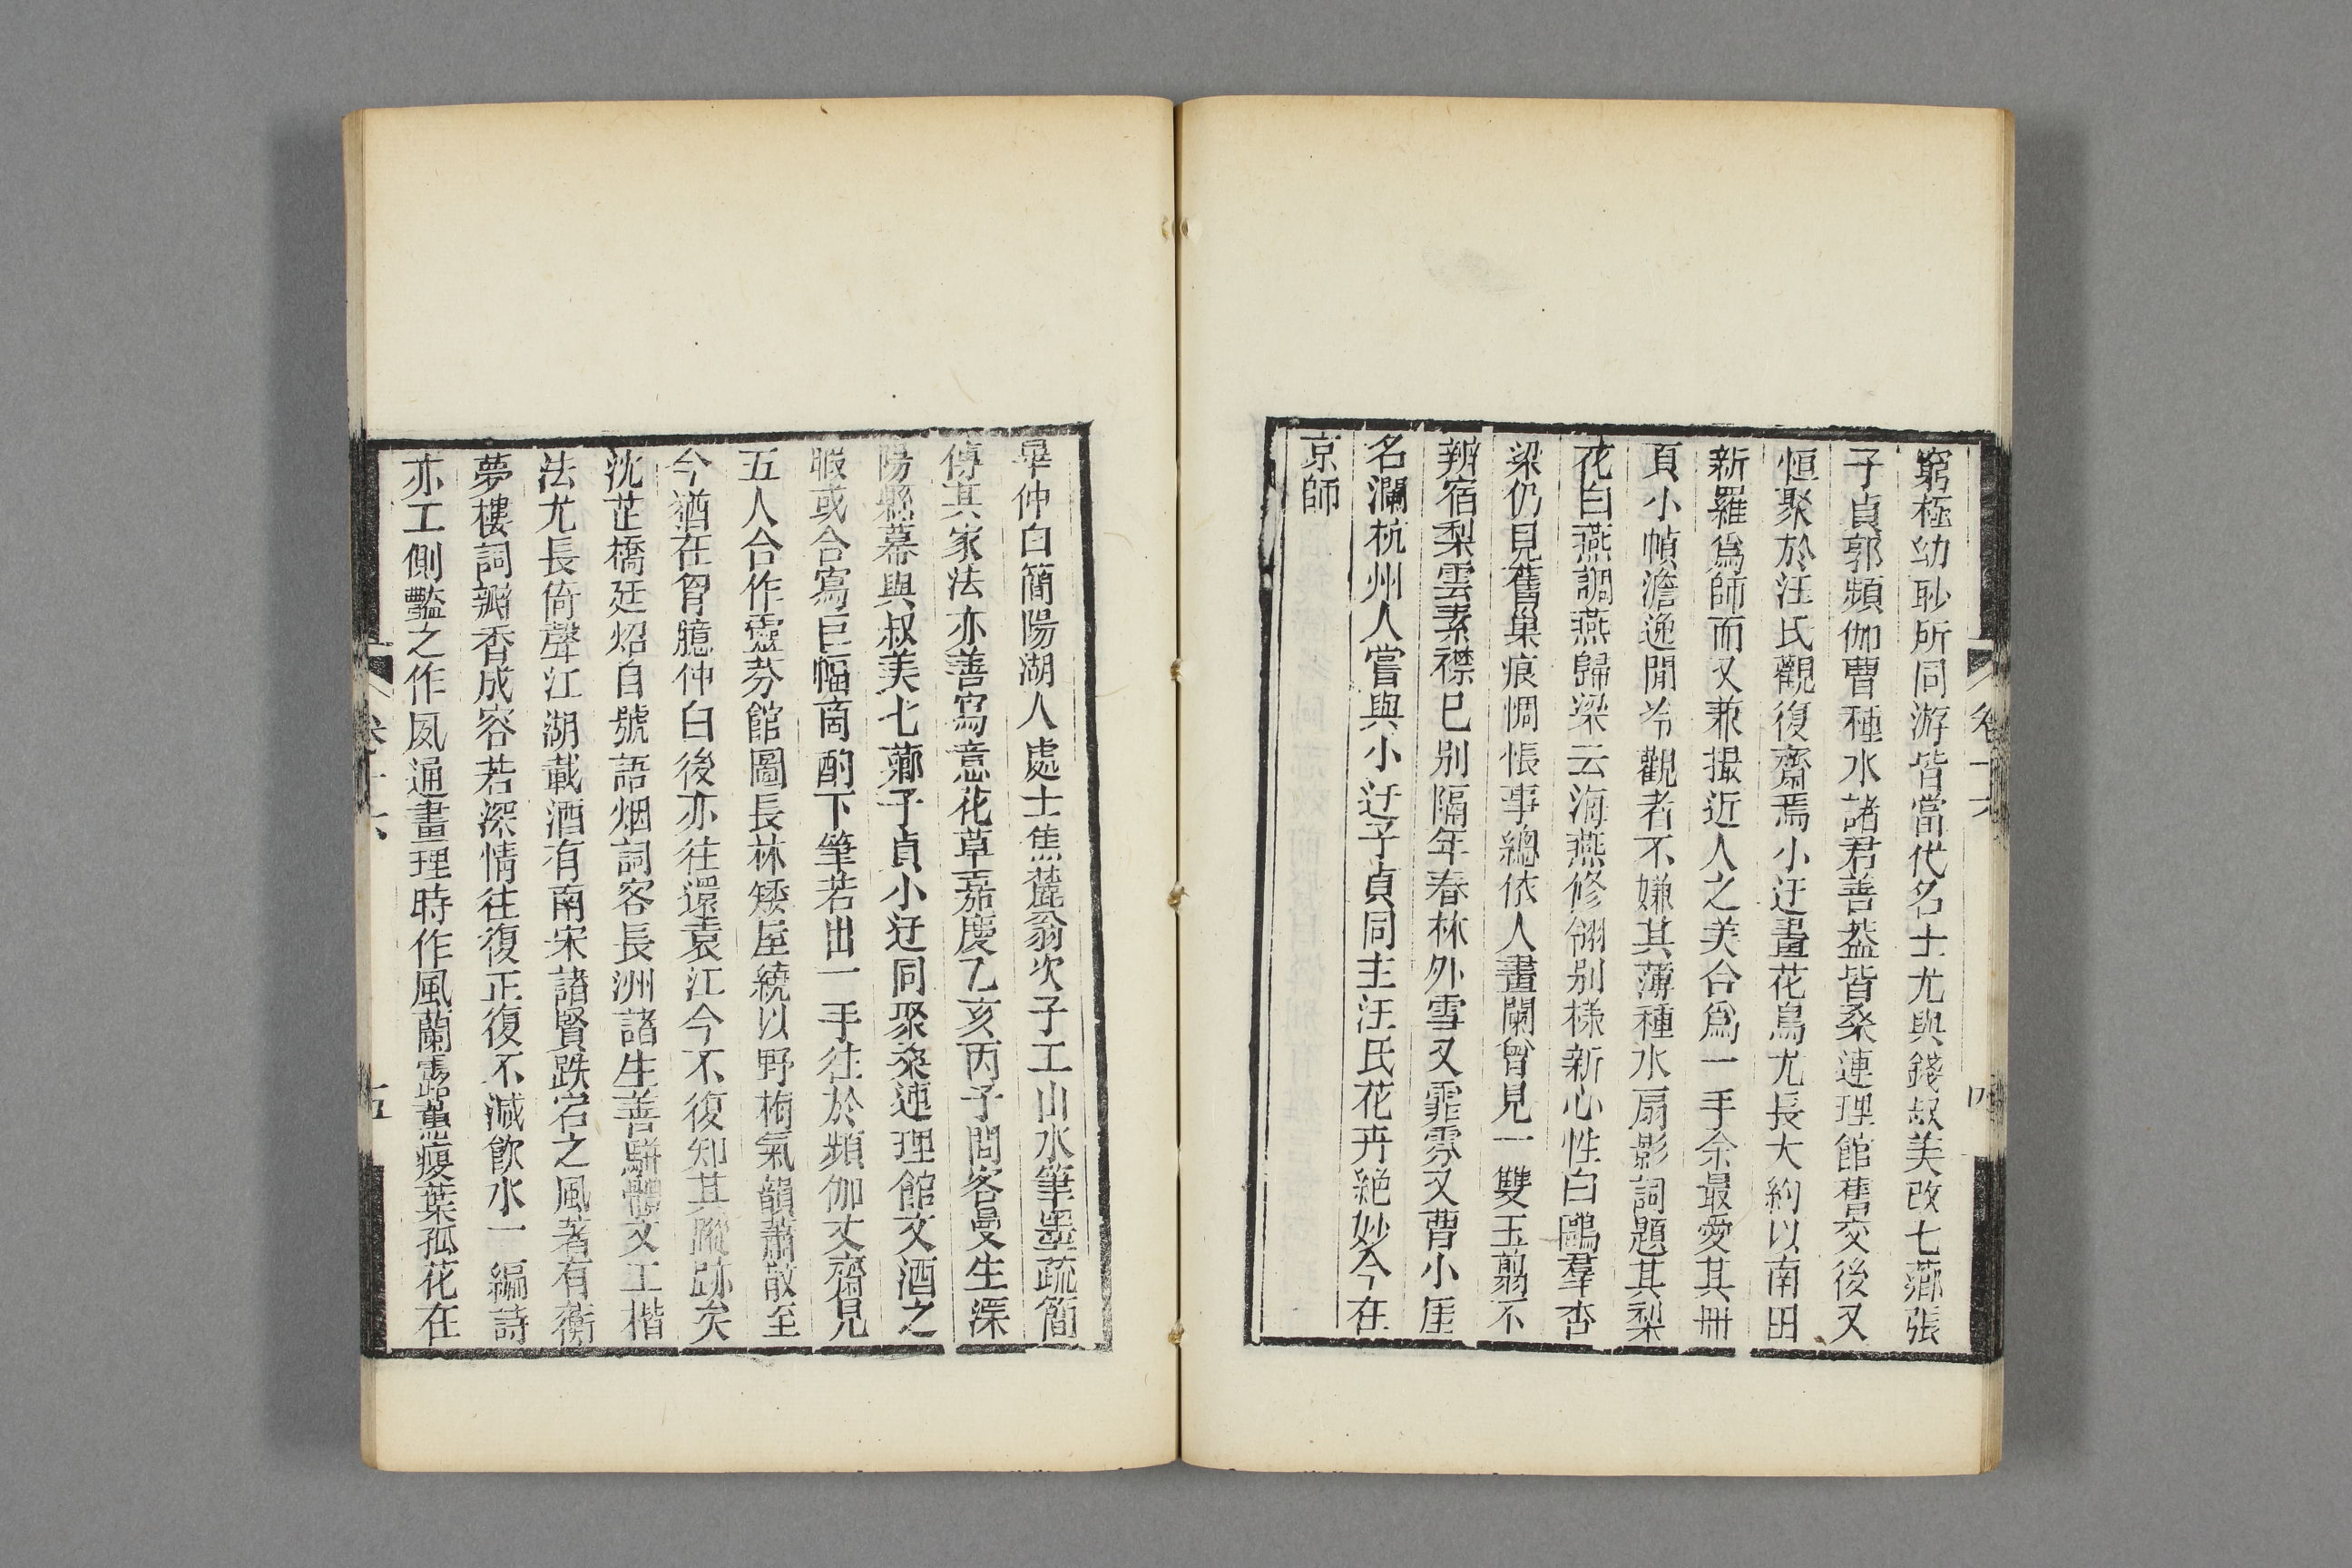 窮極幼眇所同游皆當代名士尤與錢叔美改七薌張
子貞郭頻伽曹種水諸君善葢皆桑連理館舊交後又
恒聚於汪氏觀復齋焉小迂畫花鳥尤長大約以南田
新羅爲師而又兼撮近人之美合爲一手余最愛其冊
頁小幀澹逸閒冷觀者不嫌其薄種水扇影詞題其梨
花白燕調燕歸梁云海燕修翎别樣新心性白鷗羣杏
梁仍見舊巢痕惆悵事總依人畫闌曾見一雙玉翦不
辨宿梨雲素襟已别隔年春林外雪又霏霧又曹小厓
名瀾杭州人嘗與小迂子貞同主汪氏花卉絕妙今在
京師
卷十六
四
畢仲白簡陽湖人處士焦麓翁次子工山水筆墨疏簡
傅其家法亦善寫意花草嘉慶乙亥丙子間客曼生溧
陽縣幕與叔美七薌子貞小迂同聚桑連理館文酒之
暇或合寫巨幅商酌下筆若出一手往於頻伽丈齋見
五人合作靈芬館圖長林矮屋繞以野梅氣韻蕭散至
今猶在胷臆仲白後亦往還袁江今不復知其蹤跡矣
沈芷橋廷炤自號語烟詞客長洲諸生善駢體文工楷
法尤長倚聲江湖載酒有南宋諸賢跌宕之風著有蘅
夢樓詞瓣香成容若深情往復正復不減飮水一編詩
亦工側豔之作夙通畫理時作風蘭露蕙瘦葉孤花在
卷十六
五